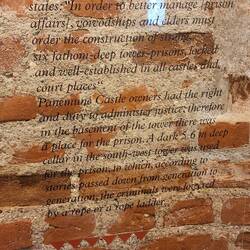 states: "In order to better manage [prison
affairs], voivodships and elders must
order the construction of strong
six fathom-deep tower-prisons, locked
and well-established in all castles and
court places".
Castle owners had the right
and duty to administer justice, therefore
in the basement of the tower there was
a place for the prison. A dark 5.6 m deep
cellar in the south-west tower was used
for the prison, to which, according to
stories passed down from generation to
generation, the criminals were lowered
by a rope or a rope ladder.